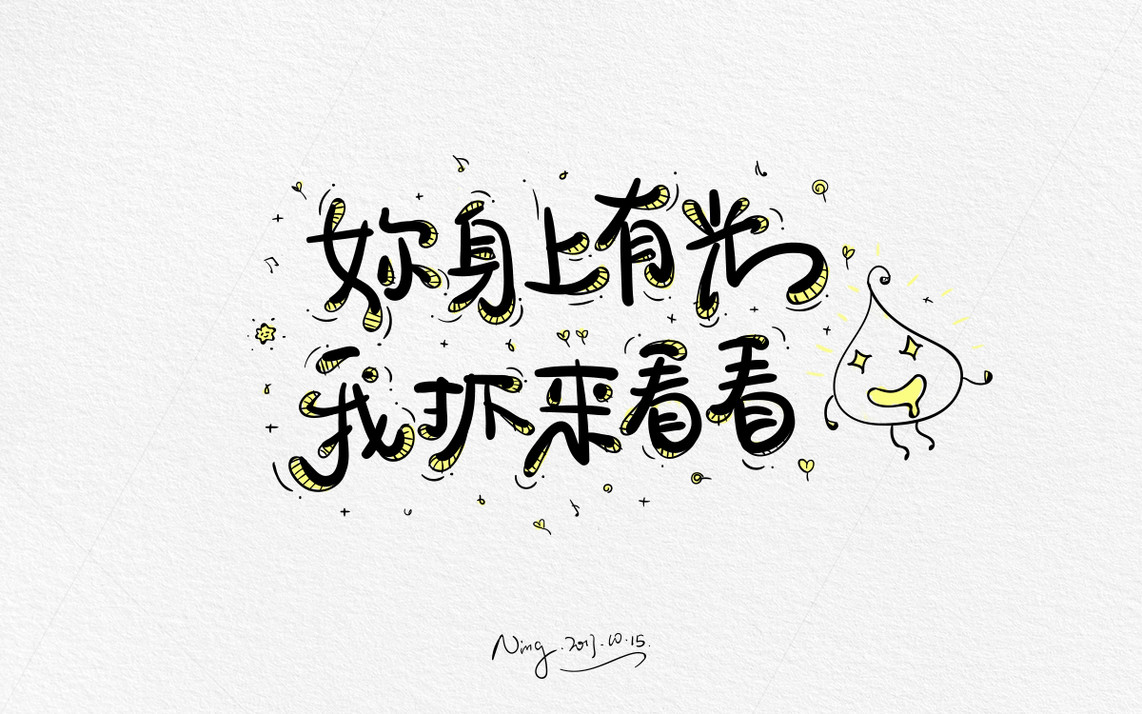 妳身上有光
我抓来看看
Ning.2017.10.15.